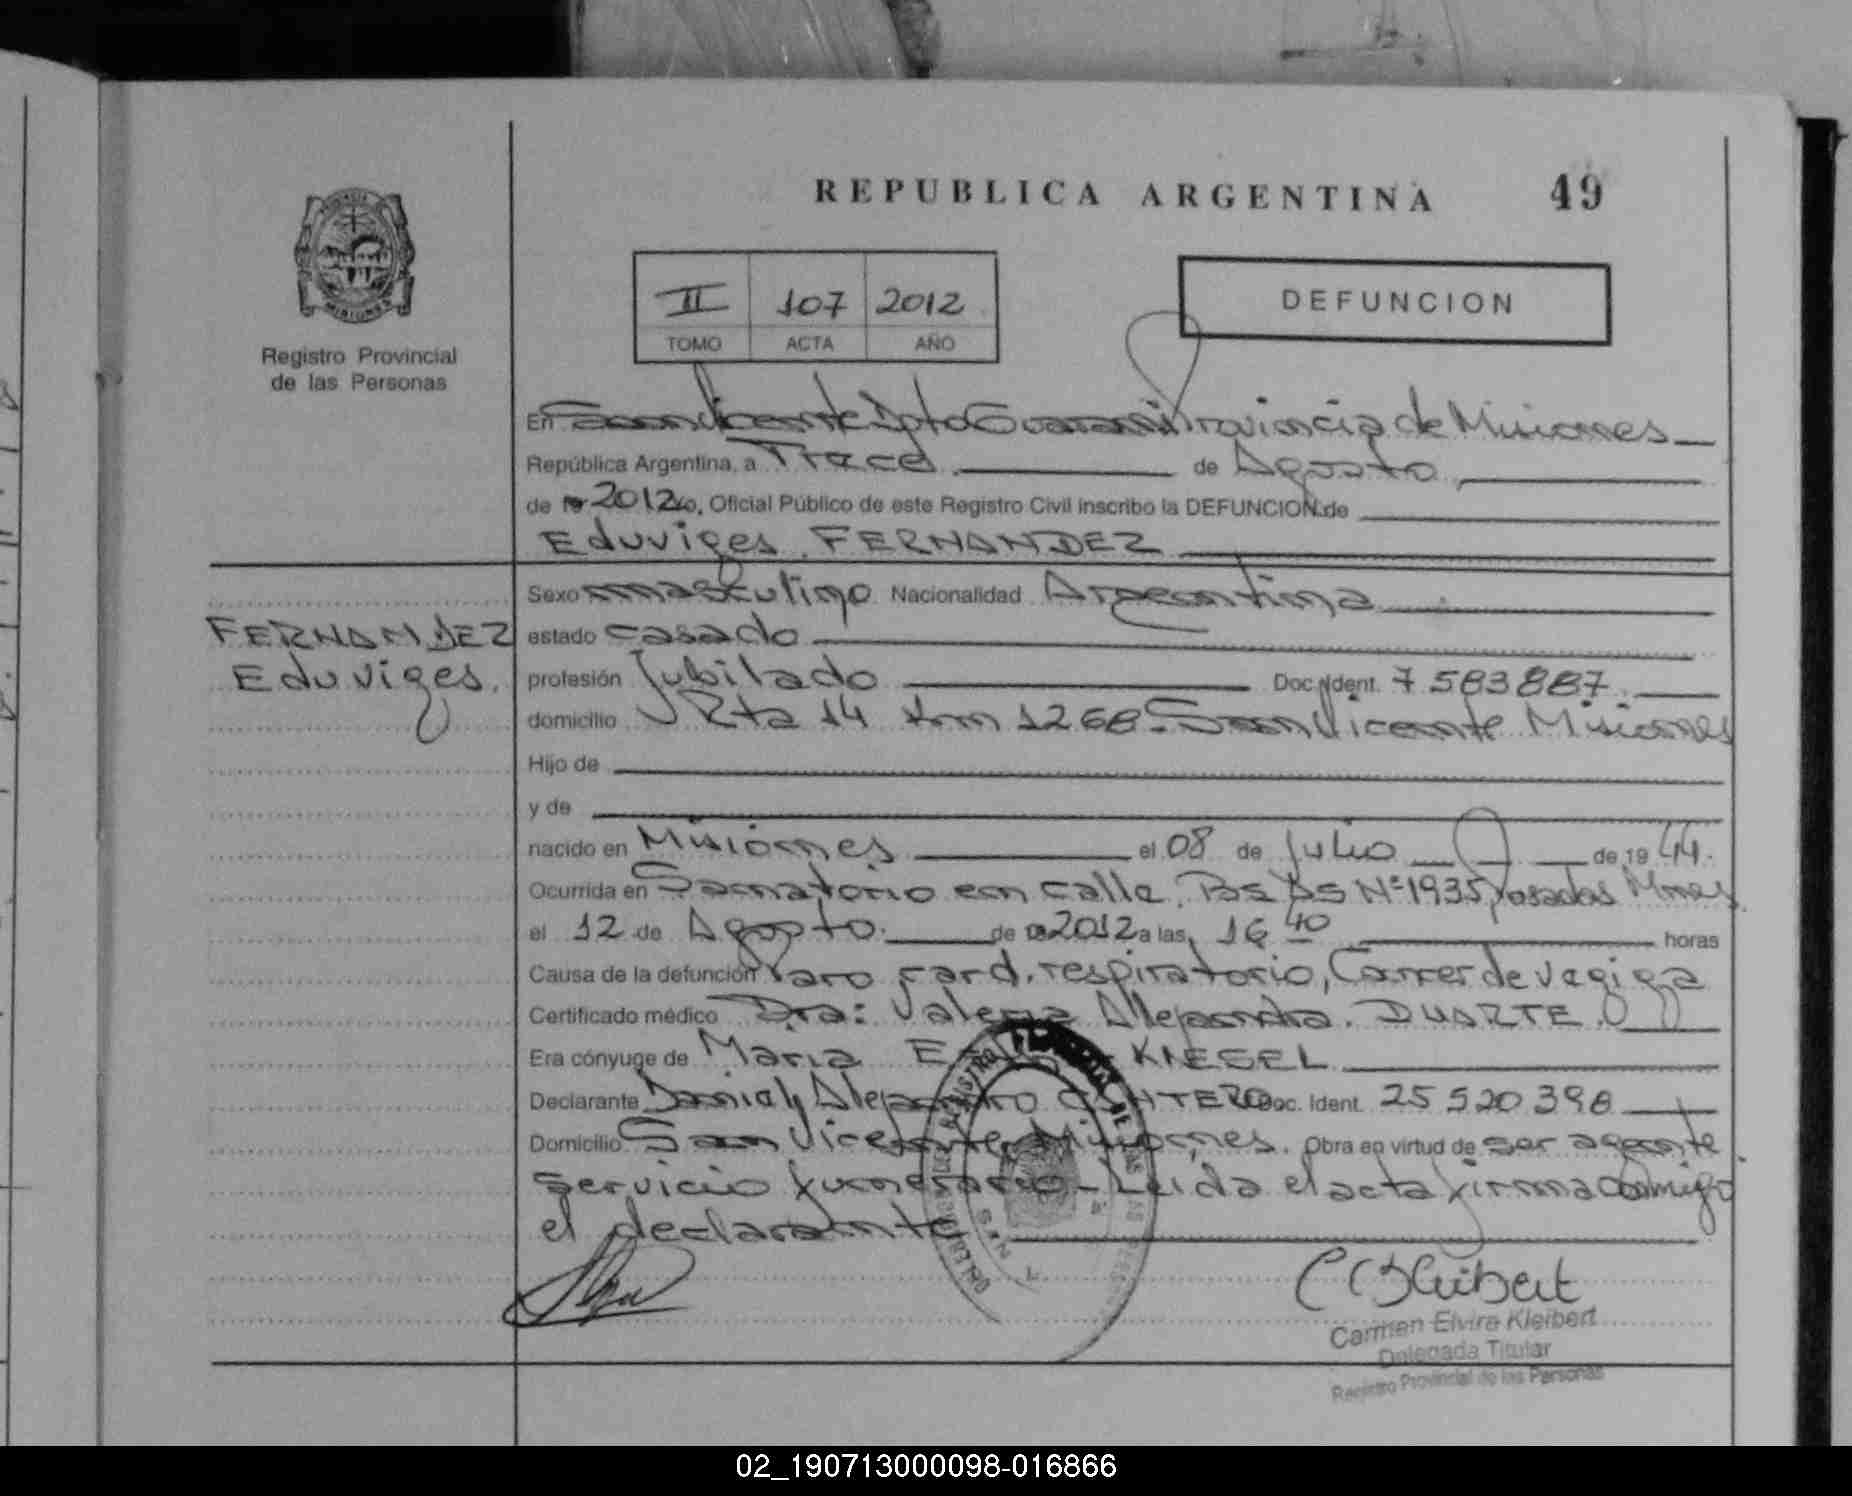 REPUBLICA ARGENTINA 49
PROVINCIA
MISIONES
Registro Provincial
de las Personas
II 107 2012
TOMO ACTA AÑO
DEFUNCION
En San Vicente Dpto Guarani Provincia de Misiones
República Argentina, a Trece de Agosto
de 19 2012 yo, Oficial Público de este Registro Civil inscribo la DEFUNCION de
Eduviges FERNANDEZ
FERNANDEZ
Eduviges.
Sexo masculino Nacionalidad Argentina
estado casado
profesión Jubilado Doc. Ident. 7583887.
domicilio Rta 14 Km 1268 - San Vicente Misiones
Hijo de
y de
nacido en Misiones el 08 de Julio de 19 44.
Ocurrida en Sanatorio en calle Bs As Nº 1935 Posadas Mnes.
el 12 de Agosto. de 19 2012 a las 16 40 horas
Causa de la defunción Paro card. respiratorio, Cancer de vegiga
Certificado médico Dra: Valeria Allejandra. DUARTE.
Era cónyuge de Maria KIESEL
Declarante Daniel Alejandro Doc. Ident. 25520398
Domicilio San Vicente, Misiones. Obra en virtud de ser agente
servicio funerario - Leida el acta firma conmigo
el declarante
Carmen Elvira Kleibert
Delegada Titular
Registro Provincial de las Personas
02_190713000098-016866